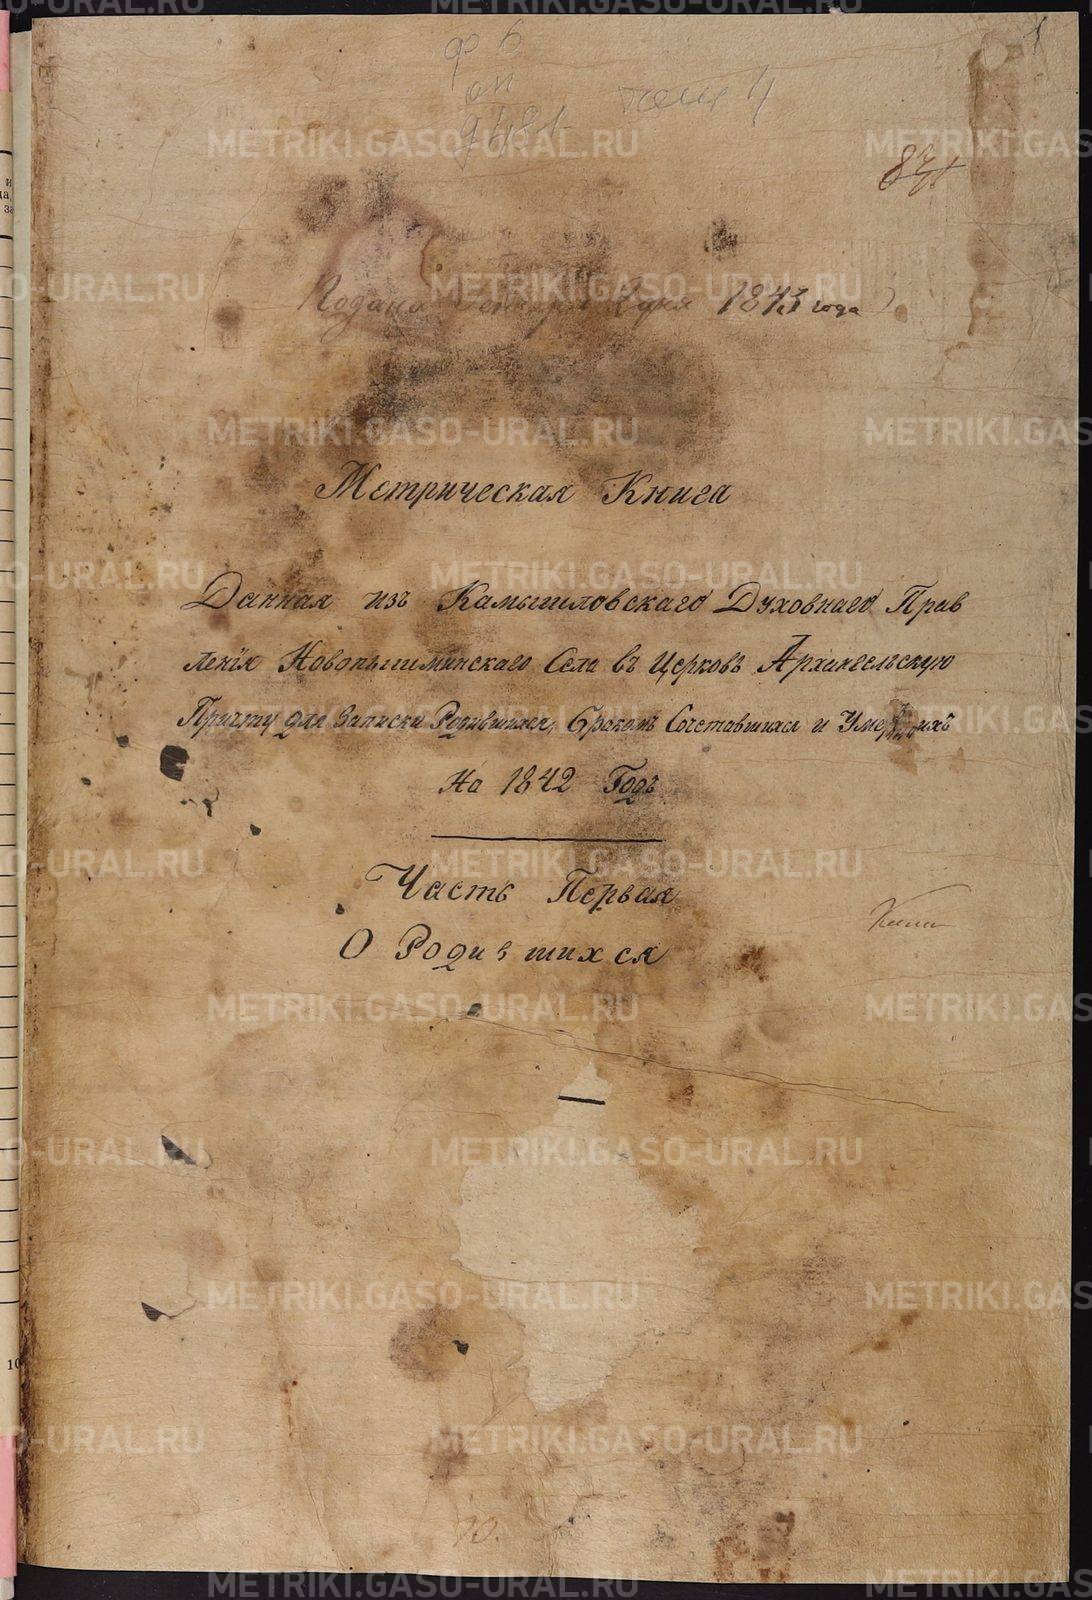 1
ф 6
оп
д 481
841
Подана Генваря 2 дня 1843 года
Метрическая Книга
Данная изъ Камышловскаго Духовнаго Прав
ленія Новопышминскаго Села въ Церковь Архангельскую
Причту для Записки Родившихся, Бракомъ Сочетавшихся и Умершихъ
На 1842 Годъ
Часть Первая
О Родившихся
METRIKI.GASO-URAL.RU